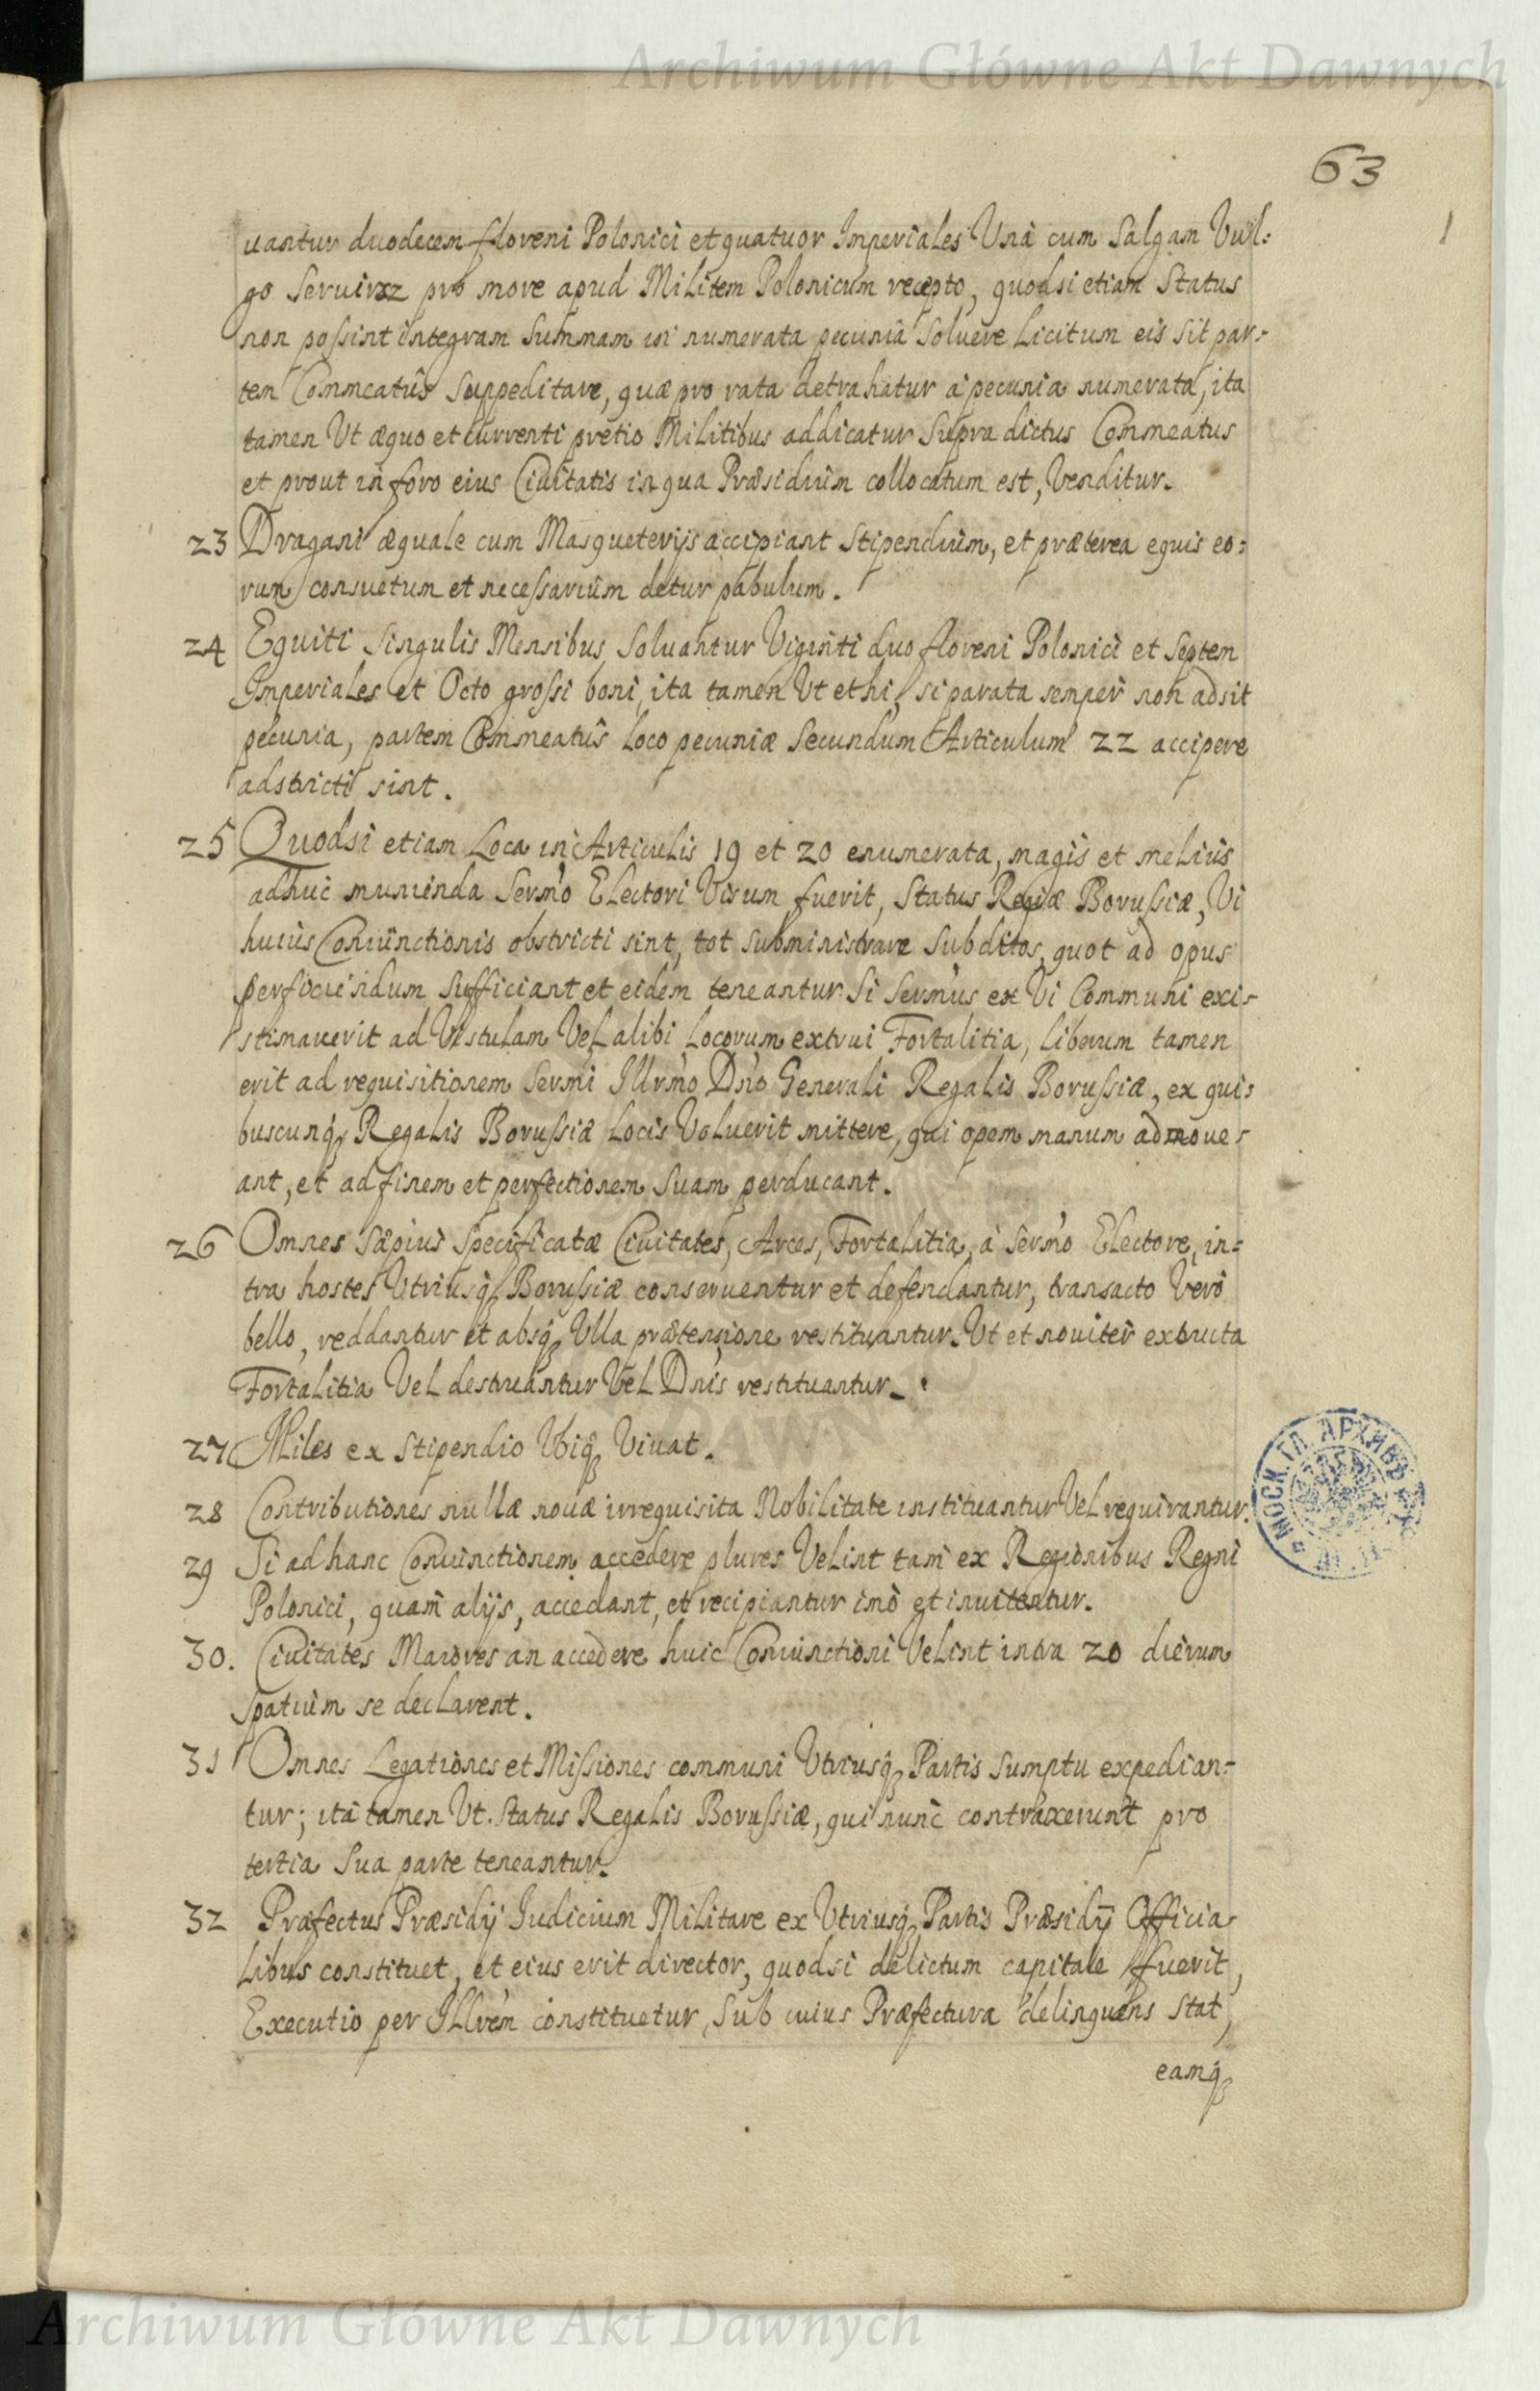 Archiwum Główne Akt Dawnych
63
uantur duodecem floreni Polonici et quatuor Imperiales Unà cum Salgam Vul:
go Seruirz pro more apud Militem Polonicum recepto, quodsi etiam Status
non possint integram Summam in numerata pecunia Soluere Licitum eis Sit par-
tem Commeatûs Suppeditare, quæ pro rata detrahatur à pecunia numerata, ita
tamen Ut æquo et currenti pretio Militibus addicatur Supra dictus Commeatus
et prout in foro eius Ciuitatis in qua Præsidium collocatum est, Venditur.
23 Dragani æquale cum Masqueterijs accipiant Stipendium, et præterea equis eo:
rum consuetum et necessarium detur pabulum.
24 Equiti Singulis Mensibus Soluantur Viginti duo floreni Polonici et Septem
Imperiales et Octo grossi boni, ita tamen Ut et hi, si parata semper non adsit
pecunia, partem Commeatûs Loco pecuniæ Secundum Articulum 22 accipere
adstricti sint.
25 Quodsi etiam Loca in Articulis 19 et 20 enumerata, magis et melius
adhuc munienda Sermo Electori Visum fuerit, Status Regiæ Borussiæ, Vi
huius Coniunctionis obstricti sint, tot Subministrare Subditos, quot ad opus
perficiendum Sufficiant et eidem teneantur. Si Sermus ex Vi Communi exi-
stimauerit ad Vistulam Vel alibi Locorum extrui Fortalitia, liberum tamen
erit ad requisitionem Sermi Illrmo Dno Generali Regalis Borussiæ, ex qui:
buscunq Regalis Borussiæ Locis Voluerit mittere, qui opem manum admoue-
ant, et ad finem et perfectionem Suam perducant.
26 Omnes Sæpius Specificatæ Ciuitates, Arces, Fortalitia, à Sermo Electore, in-
tra hostes Utriusq Borussiæ conseruentur et defendantur, transacto Verò
bello, reddantur et absq Ulla prætensione restituantur. Ut et nouiter extructa
Fortalitia Vel destruantur Vel Dnis restituantur.
27 Miles ex Stipendio Ubiq Viuat.
28 Contributiones nullæ nouæ irrequisita Nobilitate instituantur Vel requirantur.
29 Si ad hanc Coniunctionem accedere plures Velint tam ex Regionibus Regni
Polonici, quam alijs, accedant, et recipiantur imò et inuitentur.
30. Ciuitates Maiores an accedere huic Coniunctioni Velint intra 20 dierum
spatium se declarent.
31 Omnes Legationes et Missiones communi Utriusq Partis Sumptu expedian-
tur; ita tamen Ut Status Regalis Borussiæ, qui nunc contraxerunt pro
tertia Sua parte teneantur.
32 Præfectus Præsidij Iudicium Militare ex Utriusq Partis Præsidij Officia-
libus constituet, et eius erit director, quodsi delictum capitale fuerit,
Executio per Illrem constituetur, Sub cuius Præfectura delinquens Stat,
eamq
МОСК. ГЛ. АРХИВЪ
Archiwum Główne Akt Dawnych